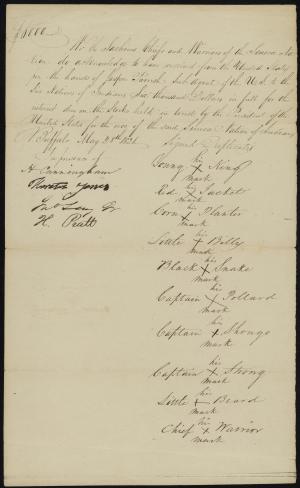 $6000.
We the Sachems Chiefs and Warriors of the Seneca Na-
tion, do acknowledge to have received from the United States
by the hands of Jasper Parrish, Sub Agent of the U.S. to the
Six Nations of Indians Six thousand Dollars in full for the
annual on the Stocks held in trust by the President of the
United States for the use of the said Seneca Nation of Indians,
Buffalo May 1821
Signed Duplicates
In presence of
A Cunningham
Horatio Jones
H. Pratt
his
Young X King
mark
his
Red X Jacket
mark
his
Corn X Planter
mark
his
Little X Billy
mark
his
Black X Snake
mark
his
Captain X Pollard
mark
his
Captain X Shongo
mark
his
Captain X Strong
mark
his
Little X Beard
mark
his
Chief X Warrior
mark